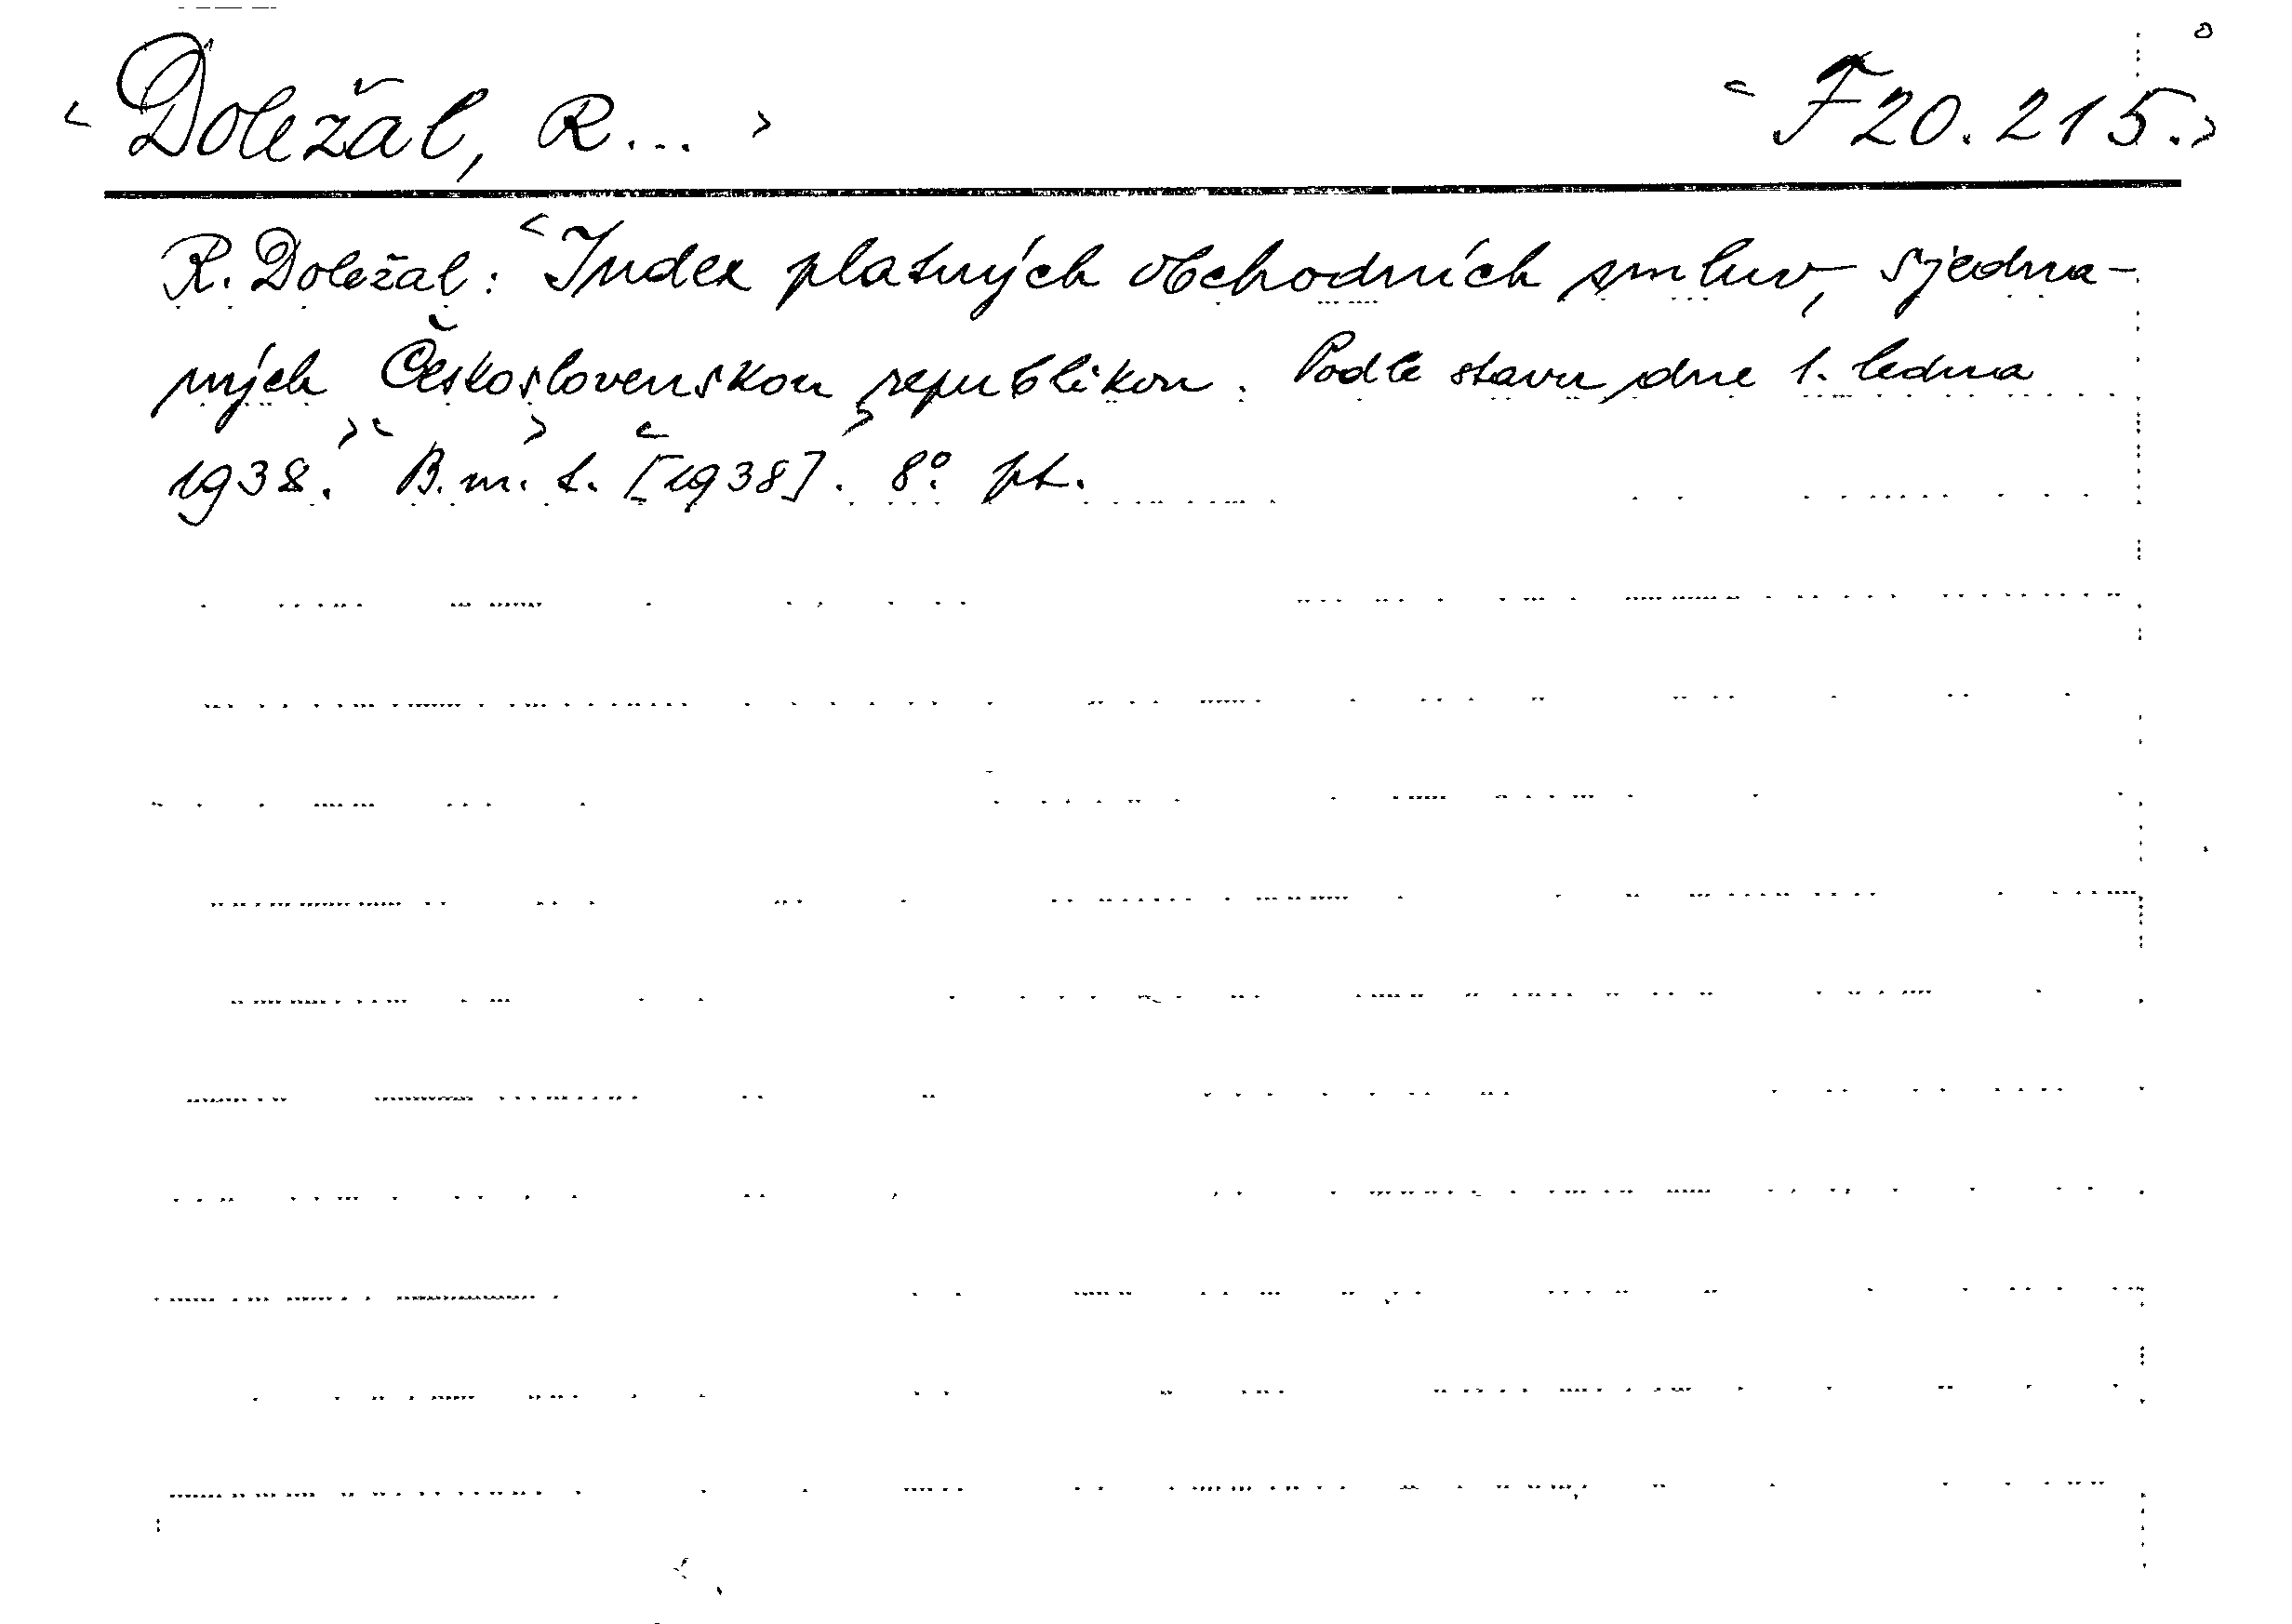 <Doležal, R...> <F20.215.>
R. Doležal: <Index platných obchodních smluv, sjedna-
ných Československou republikou. Podle stavu dne 1. ledna
1938.> <B. m. t.> <[1938]. 8°.> pt.